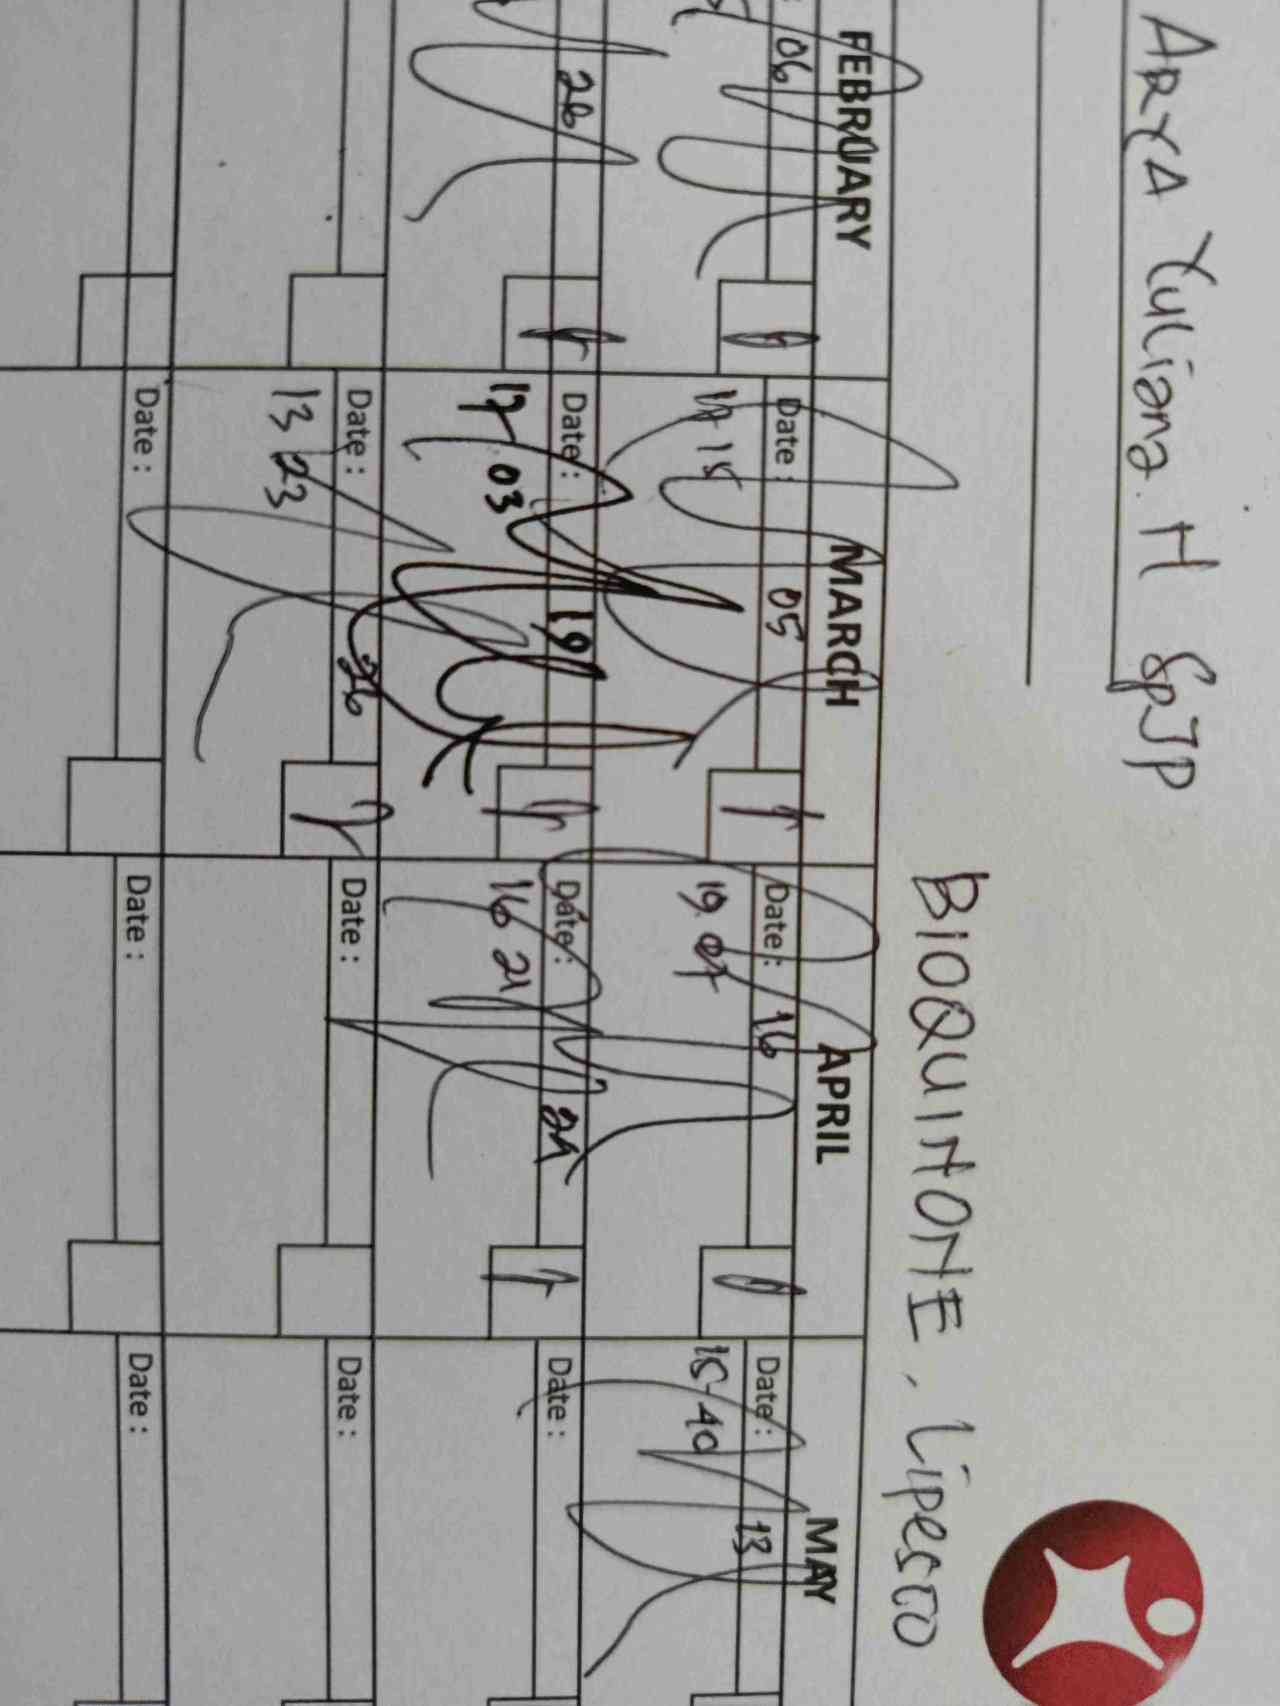 ARYA Yuliana. H SpJP
BIOQUINONE, Lipesco
FEBRUARY MARCH APRIL MAY
06 Date : 05 Date : 16 Date : 13
17 15 19 07 15-40
20 Date : 19 Date : Date :
17 03 16 21
Date : 26 Date : Date :
13 23
Date : Date : Date :